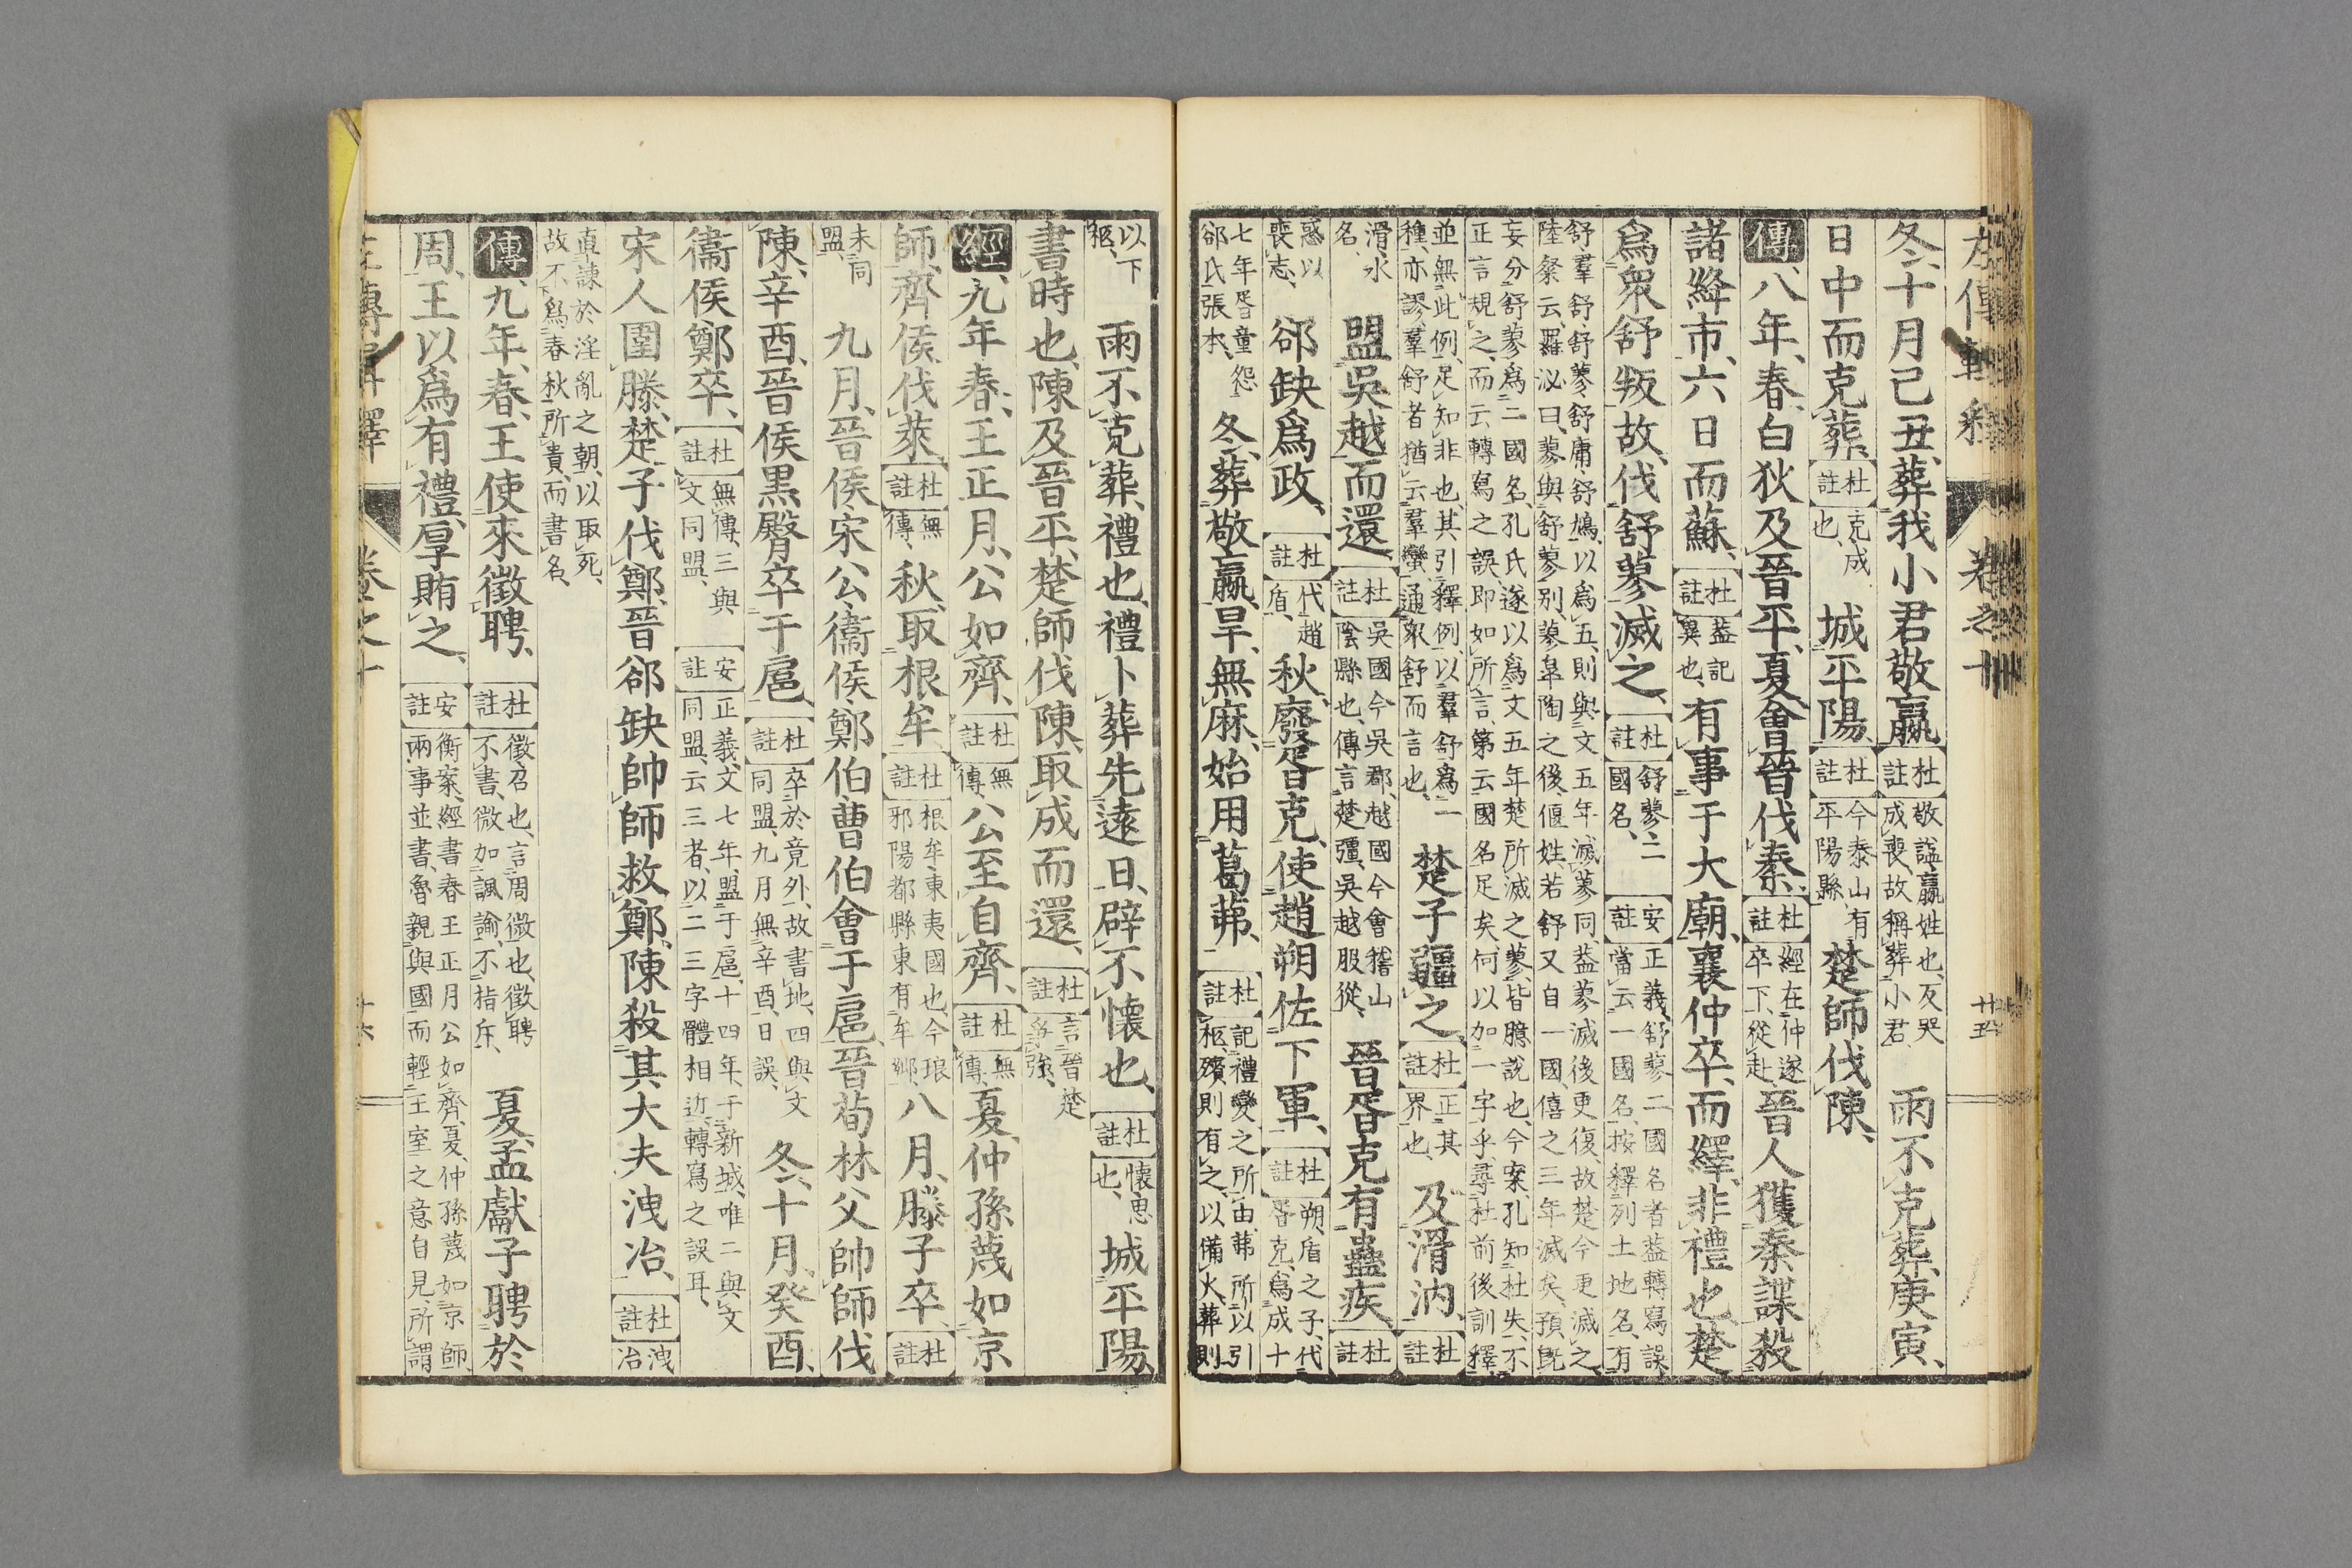 左傳輯釋 卷之十
冬、十月己丑、葬我小君敬嬴、杜註敬謚、嬴姓也、反哭成喪、故稱葬小君、雨不克葬、庚寅、
日中而克葬、杜註克成也、城平陽、杜註今泰山有平陽縣、楚師伐陳、
傳、八年、春、白狄及晉平、夏、會晉伐秦、杜註經在仲遂卒下、從赴、晉人獲秦諜、殺
諸絳市、六日而蘇、杜註蓋記異也、有事于大廟、襄仲卒、而繹、非禮也、楚
爲衆舒叛故、伐舒蓼、滅之、杜註舒蓼二國名、安註正義、舒蓼二國名者、蓋轉寫誤、當云一國名、按釋例土地名、有
舒、羣舒、舒蓼、舒庸、舒鳩、以爲五、則與文五年滅蓼同、蓋蓼滅後更復、故楚今更滅之、
陸粲云、羅泌曰、蓼與舒蓼別、蓼皐陶之後、偃姓、若舒又自一國、僖之三年滅矣、預旣
妄分舒蓼爲二國名、孔氏遂以爲文五年楚所滅之蓼、皆臆說也、今案、孔知杜失、不
正言規之、而云轉寫之誤、即如所言、第云國名足矣、何以加一字乎、尋杜前後訓釋、
並無此例、足知非也、其引釋例、以羣舒爲一
種、亦謬、羣舒者、猶云羣蠻、通衆舒而言也、楚子疆之、杜註正其界也、及滑汭、杜註
滑、水名、盟吳越而還、杜註吳國今吳郡、越國今會稽山陰縣也、傳言楚彊、吳越服從、晉胥克有蠱疾、杜註
惑以喪志、郤缺爲政、杜註代趙盾、秋、廢胥克、使趙朔佐下軍、杜註朔、盾之子、代胥克、爲成十
七年胥童怨郤氏張本、冬、葬敬嬴、旱、無麻、始用葛茀、杜註記禮變之所由、茀所以引柩、殯則有之、以備火、葬則
以下柩、雨不克葬、禮也、禮卜葬先遠日、辟不懷也、杜註懷思也、城平陽、
書時也、陳及晉平、楚師伐陳、取成而還、杜註言晉楚爭強、
經、九年、春、王正月、公如齊、杜註無傳、公至自齊、杜註無傳、夏、仲孫蔑如京
師、齊侯伐萊、杜註無傳、秋、取根牟、杜註根牟、東夷國也、今琅邪陽都縣東有牟鄉、八月、滕子卒、杜註
未同盟、九月、晉侯、宋公、衞侯、鄭伯、曹伯會于扈、晉荀林父帥師伐
陳、辛酉、晉侯黑臀卒于扈、杜註卒於竟外、故書地、四與文同盟、九月無辛酉、日誤、冬、十月、癸酉、
衞侯鄭卒、杜註無傳、三與文同盟、安註正義、文七年盟于扈、十四年于新城、唯二與文同盟、云三者、以二三字體相近、轉寫之誤耳、
宋人圍滕、楚子伐鄭、晉郤缺帥師救鄭、陳殺其大夫洩冶、杜註洩冶
直諫於淫亂之朝、以取死、
故不爲春秋所貴、而書名、
傳、九年、春、王使來徵聘、杜註徵召也、言周徵也、徵聘不書、微加諷諭、不指斥、夏、孟獻子聘於
周、王以爲有禮、厚賄之、安註衡案、經書春王正月公如齊、夏、仲孫蔑如京師、兩事並書、魯親與國而輕王室之意自見、所謂
左傳輯釋 卷之十